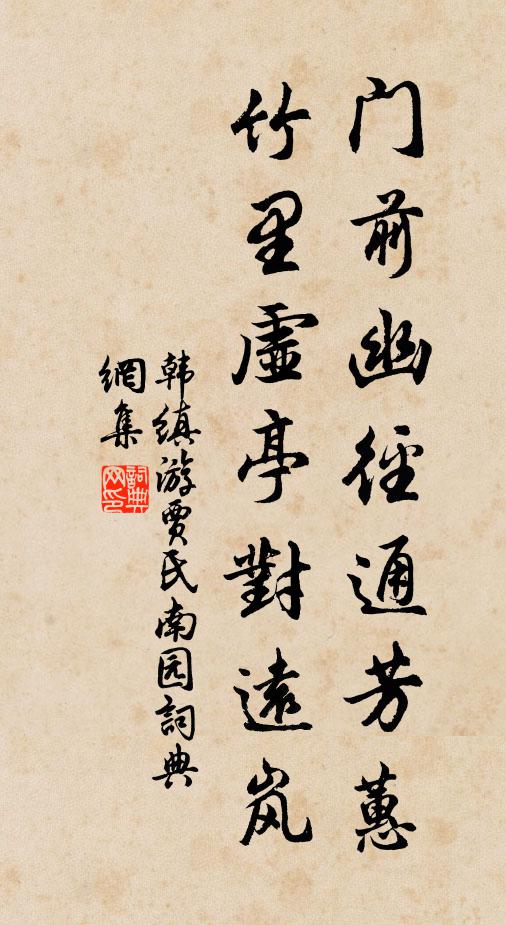 门前幽径通芳蕙
竹里虚亭對遠岚
韩缜游贾氏南园詞典
網集
詞典网印